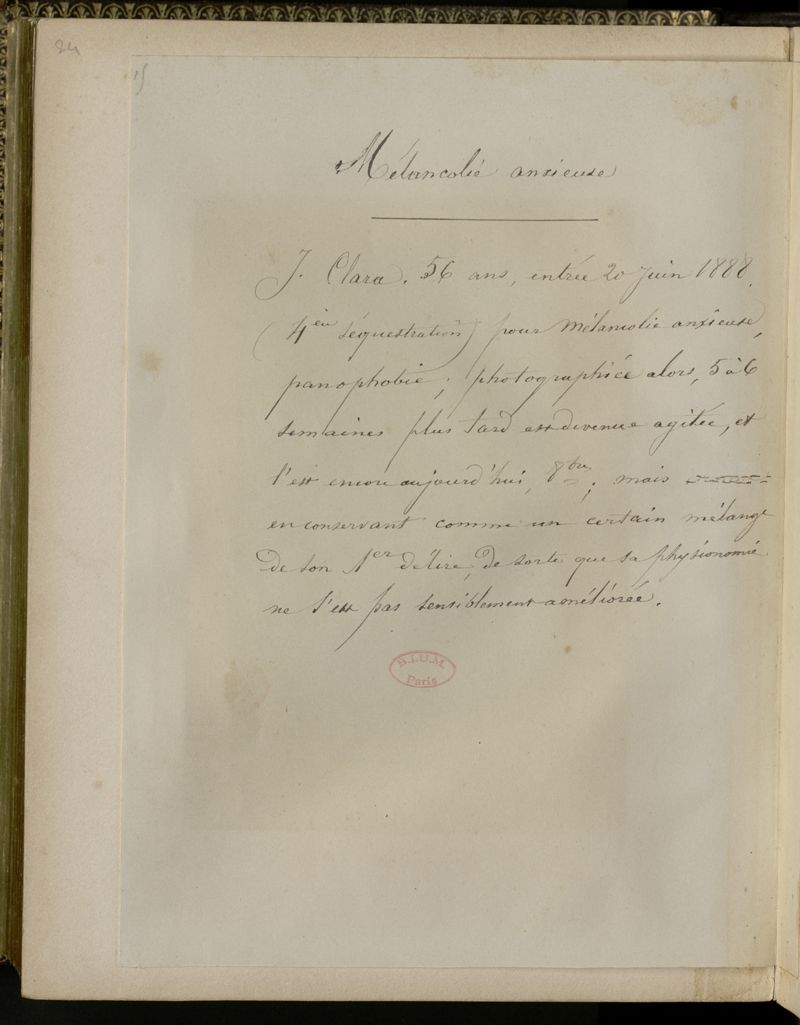 24
15
Mélancolie anxieuse
J. Clara. 56 ans, entrée 20 Juin 1888
(4èm séquestration) pour mélancolie anxieuse,
panophobie ; photographiée alors, 5 à 6
semaines plus tard est devenue agitée, et
l'est encore aujourd'hui, 8bre ; mais
en conservant comme un certain mélange
de son 1er délire, de sorte que sa physionomie
ne s'est pas sensiblement améliorée.
B.I.U.M.
Paris